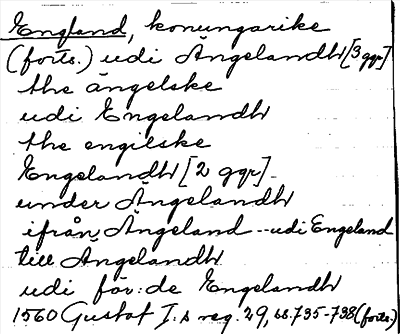 England, konungarike
(forts.) udi Ängelandh [3 ggr]
the ängelske
udi Engelandh
the engilske
Engelandh [2 ggr]
under Ängelandh
ifrån Ängeland -- udi Engeland
till Ängelandh
udi för:de Engelandh
1560 Gustaf I:s reg. 29, bl. 735-738 (forts.)